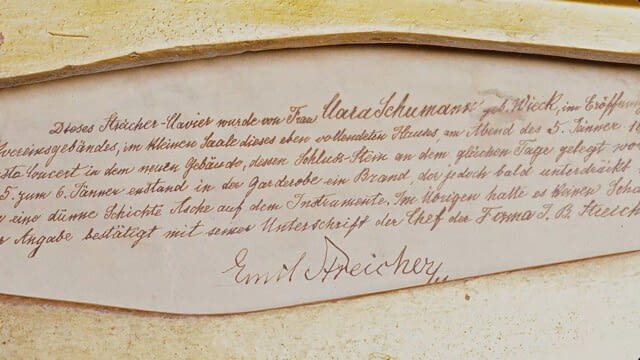 Dieses Streicher-Clavier wurde von Frau Clara Schumann geb. Wieck, im Eröffnung
Vereinsgebäudes, im kleinen Saale dieses eben vollendeten Hauses, am Abend des 5. Jänner
Concert in dem neuen Gebäude, dessen Schluss-Stein an dem gleichen Tage gelegt wor
5. zum 6. Jänner entstand in der Garderobe ein Brand, der jedoch bald unterdrückt
eine dünne Schichte Asche auf dem Instrumente. Im Übrigen hatte es keinen Scha
Angabe bestätigt mit seiner Unterschrift der Chef der Firma J. B. Streich
Emil Streicher